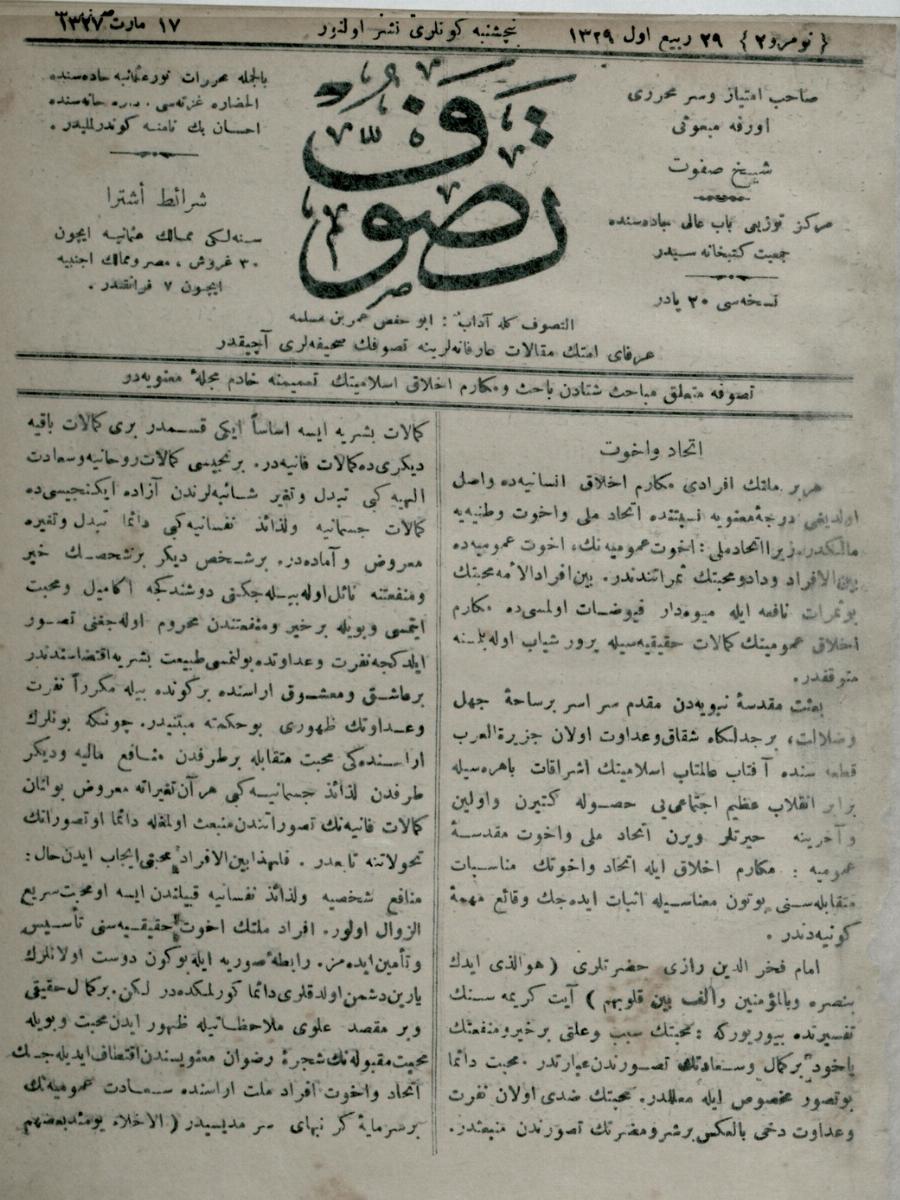 { نومرو ٢ } ٢٩ ربيع اول ١٣٢٩
پنجشنبه كونلرى نشر اولنور
١٧ مارت ١٣٢٧
صاحب امتياز و سر محررى
اورفه مبعوثى
شيخ صفوت
مركز توزيعى باب عالى جاده‌سنده
جمعيت كتبخانه سيدر
نسخه‌سى ٢٠ پاره‌در
تصوف
بالجمله محررات نورعثمانيه جاده‌سنده
الحضاره غزته‌سى اداره خانه‌سنده
احسان بك نامنه كوندرلمليدر .
شرائط أشترا
سنه‌لكى ممالك عثمانيه ايچون
٣٠ غروش ، مصر و ممالك اجنبيه
ايچون ٧ فرانقدر .
التصوف كله آداب : ابو حفص عمر بن مسلمه
عرفاى امتك مقالات عارفانه‌لرينه تصوفك صحيفه‌لرى آچيقدر
تصوفه متعلق مباحث شتادن باحث و مكارم اخلاق اسلاميتك تعميمنه خادم مجلهٔ معنويه‌در
اتحاد و اخوت
هر بر ملتك افرادى مكارم اخلاق انسانيه‌ده واصل
اولديغى درجهٔ معنويه نسبتنده اتحاد ملى و اخوت وطنيه‌يه
مالكدر. زيرا اتحاد ملى : اخوت عموميه‌نك، اخوت عموميه‌ده
بين الافراد وداد و محبتك ثمراتندندر. بين افراد الأمه محبتك
بو ثمرات نافعه ايله ميوه‌دار فيوضات اولمسى‌ده مكارم
اخلاق عموميتك كمالات حقيقيه‌سيله پرور شياب اوله‌بلمسنه
متوقفدر.
بعثت مقدسهٔ نبويه‌دن مقدم سراسر بر ساحهٔ جهل
و ضلالت، بر جدلكاه شقاق و عداوت اولان جزيرة العرب
قطعه سنده آفتاب عالمتاب اسلاميتك اشراقات باهره‌سيله
برابر انقلاب عظيم اجتماعى‌يى حصوله كتيرن و اولين
و آخرينه حيرتلر ويرن اتحاد ملى و اخوت مقدسهٔ
عموميه : مكارم اخلاق ايله اتحاد و اخوتك مناسبات
متقابله‌سنى بوتون معناسيله اثبات ايده‌جك وقائع مهمهٔ
كونيه‌دندر .
امام فخر الدين رازى حضرتلرى ( هو الذى ايدك
بنصره وبالمؤمنين وألف بين قلوبهم ) آيت كريمه سنك
تفسيرنده بيوريوركه : محبتك سبب و علتى بر خير و منفعتك
ياخود بر كمال و سعادتك تصورندن عبارتدر. محبت دائما
بو تصور مخصوص ايله معللدر. محبتك ضدى اولان نفرت
و عداوت دخى بالعكس بر شر و مضرتك تصورندن منبعثدر.
كمالات بشريه ايسه اساساً ايكى قسمدر برى كمالات باقيه
ديكرى‌ده كمالات فانيه‌در. برنجيسى كمالات روحانيه و سعادت
الهيه كبى تبدل و تغير شائبه‌لرندن آزاده ايكنجيسى‌ده
كمالات جسمانيه و لذائذ نفسانيه كبى دائما تبدل و تغيره
معروض و آماده‌در. بر شخص ديكر بر شخصك خير
و منفعتنه نائل اوله بيله‌جكنى دوشندكجه اكا ميل و محبت
ايتمسى و بويله بر خير و منفعتندن محروم اوله‌جغنى تصور
ايلدكجه نفرت و عداوتده بولنمسى طبيعت بشريه اقتضاسندندر
بر عاشق و معشوق اراسنده بر كونده بيله مكرراً نفرت
و عداوتك ظهورى بو حكمته مبتنيدر. چونكه بونلرك
اراسنده‌كى محبت متقابله بر طرفدن منافع ماليه و ديكر
طرفدن لذائذ جسمانيه كبى هر آن تغيراته معروض بولنان
كمالات فانيه‌نك تصوراتندن منبعث اولمغله دائما او تصوراتك
تحولاتنه تابعدر . فلهذا بين الافراد محبتى ايجاب ايدن حال :
منافع شخصيه و لذائذ نفسانيه قبيلندن ايسه او محبت سريع
الزوال اولور. افراد ملتك اخوت حقيقيه‌سنى تأسيس
و تأمين ايده‌مز. رابطهٔ صوريه ايله بوكون دوست اولانلرك
يارين دشمن اولدقلرى دائما كورلمكده‌در لكن. بر كمال حقيقى
و بر مقصد علوى ملاحظاتيله ظهور ايدن محبت و بويله
محبت مقبوله‌نك شجرهٔ رضوان معنويسندن اقتطاف ايديله‌جك
اتحاد و اخوت افراد ملت اراسنده سعادت عموميه‌نك
بر سرمايهٔ كر نبهاى سر مديسيدر ( الاخلاء يومئذ بعضهم